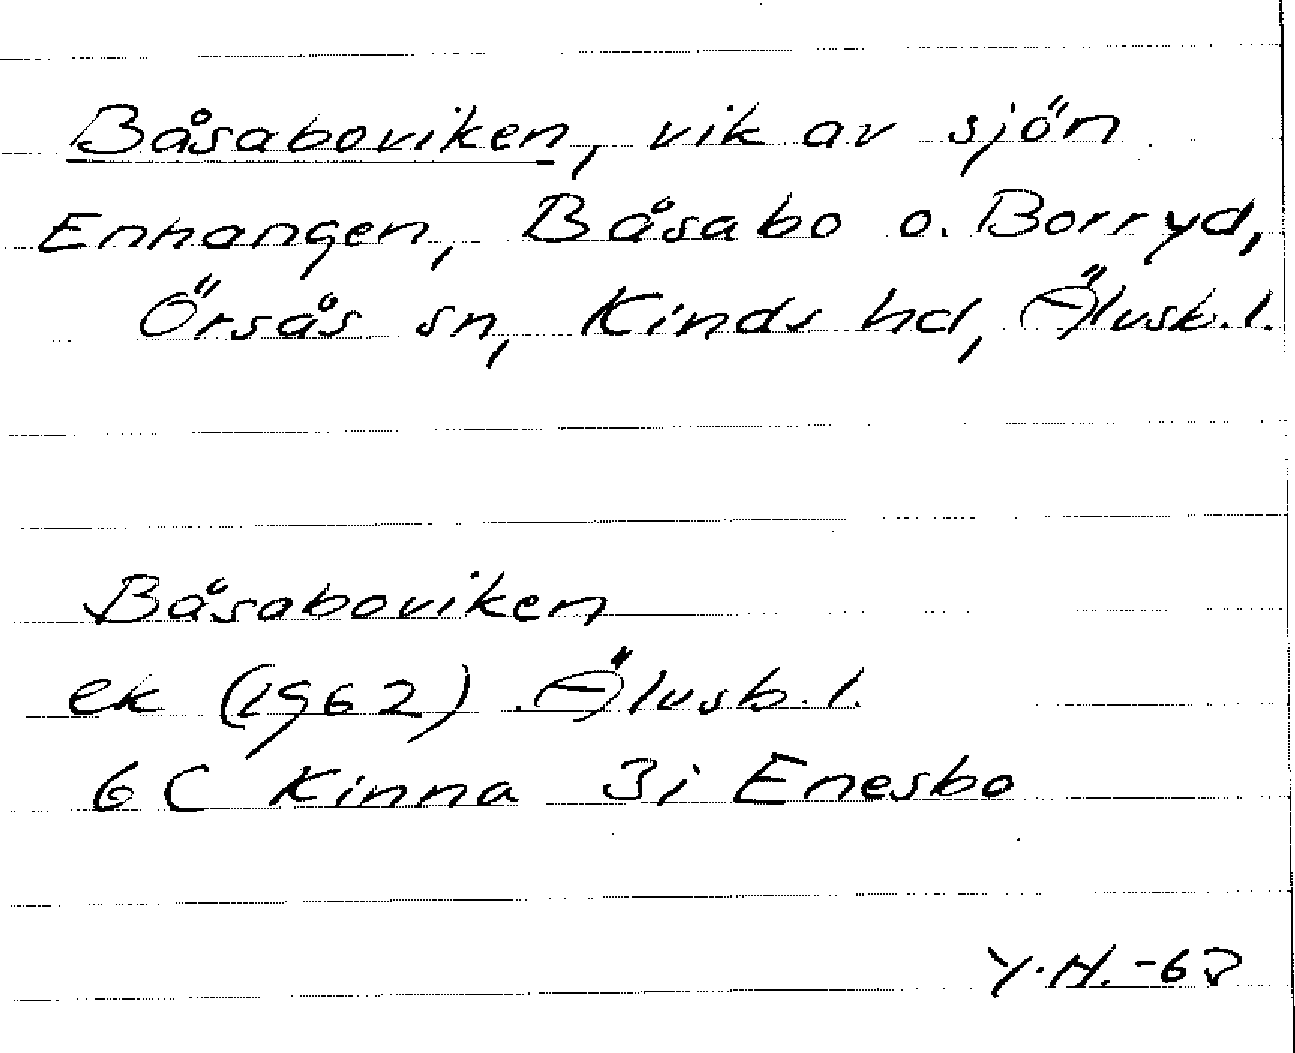 Båsaboviken, vik av sjön
Enhangen, Båsabo o. Borryd,
Örsås sn, Kinds hd, Älvsb.l.
Båsaboviken
ek (1962) Älvsb.l.
6C Kinna 3i Enesbo
Y.H.-63